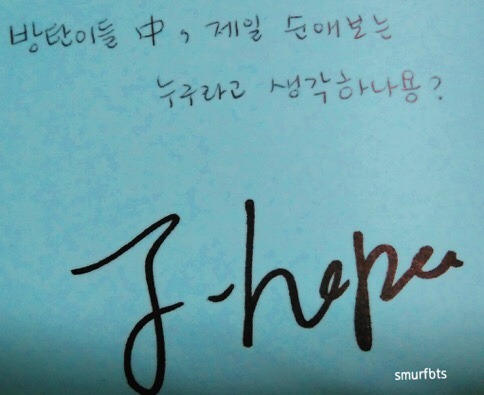 방탄이들 中, 제일 순애보는
누구라고 생각하나용?
J-hope
smurfbts